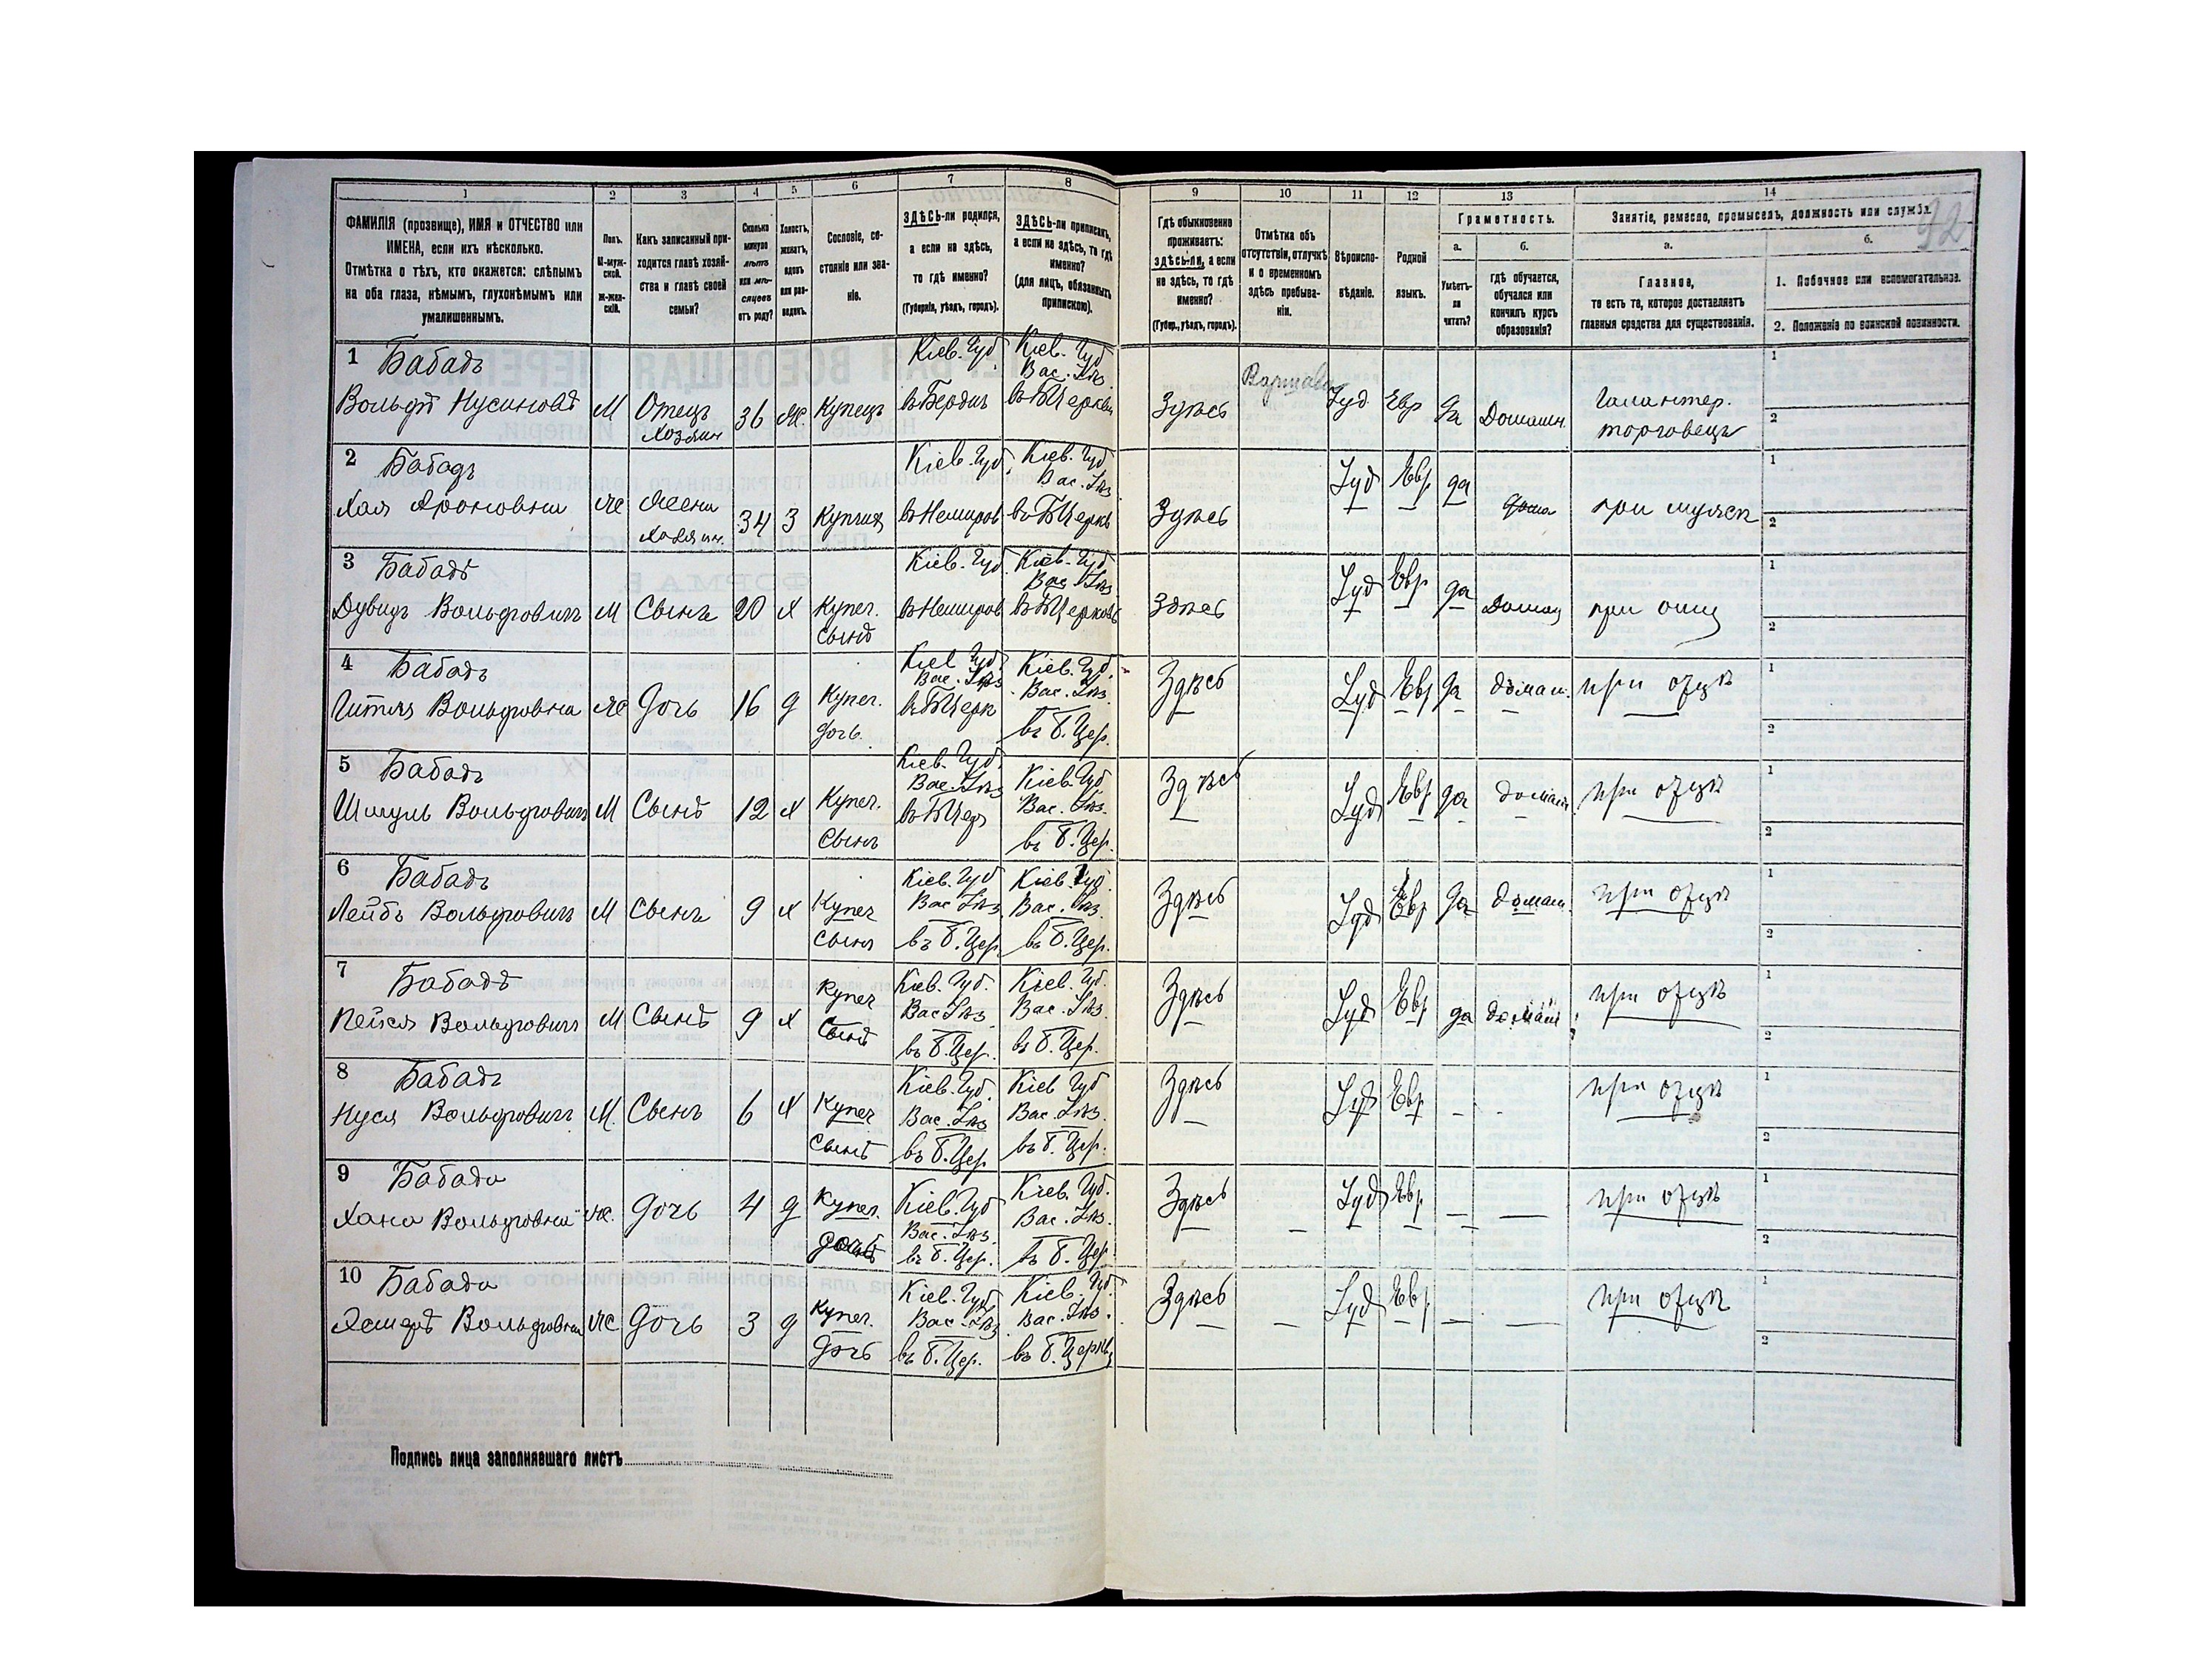 1 2 3 4 5 6 7 8 9 10 11 12 13 14
ФАМИЛІЯ (прозвище), ИМЯ и ОТЧЕСТВО или
ИМЕНА, если ихъ нѣсколько.
Отмѣтка о тѣхъ, кто окажется: слѣпымъ
на оба глаза, нѣмымъ, глухонѣмымъ или
умалишеннымъ.
Полъ.
М-муж-
ской.
ж-жен-
скій.
Какъ записанный при-
ходится главѣ хозяй-
ства и главѣ своей
семьи?
Сколько
минуло
лѣтъ
или мѣ-
сяцевъ
отъ роду?
Холостъ,
женатъ,
вдовъ
или раз-
веденъ.
Сословіе, со-
стояніе или зва-
ніе.
ЗДѢСЬ-ли родился,
а если не здѣсь,
то гдѣ именно?
(Губернія, уѣздъ, городъ).
ЗДѢСЬ-ли приписанъ,
а если не здѣсь, то гдѣ
именно?
(для лицъ, обязанныхъ
припискою).
Гдѣ обыкновенно
проживаетъ:
здѣсь-ли, а если
не здѣсь, то гдѣ
именно?
(Губер., уѣздъ, городъ).
Отмѣтка объ
отсутствіи, отлучкѣ
и о временномъ
здѣсь пребыва-
ніи.
Вѣроиспо-
вѣданіе.
Родной
языкъ.
Грамотность.
а.
Умѣетъ-
ли
читать?
б.
гдѣ обучается,
обучался или
кончилъ курсъ
образованія?
Занятіе, ремесло, промыселъ, должность или служба.
92
а.
Главное,
то есть то, которое доставляетъ
главныя средства для существованія.
б.
1. Побочное или вспомогательное.
2. Положеніе по воинской повинности.
1 Бабадъ Кіев. Губ Кіев. Губ
Вас. Уѣз
Вольфъ Нусиновъ М Отецъ 36 Ж. Купецъ въ Бердич въ БЦеркви Здѣсь Іуд Евр да Домашн. Галантер. 1
Хозяин торговецъ 2
2 Бабадъ Кіев. Губ. Кіев. Губ 1
Вас. Уѣз
Хая Ароновна Ж Жена 34 З Купчих въ Немиров въ БЦеркв Здѣсь Іуд Евр да дома при мужѣ 2
Хозяин.
3 Бабадъ Кіев. Губ. Кіев. Губ. 1
Вас. Уѣз
Дувидъ Вольфовичъ М Сынъ 20 Х Купеч. въ Немиров въ БЦерковь Здѣсь Іуд Евр да Домаш при отцѣ 2
Сынъ
4 Бабадъ Кіев Губ. Кіев. Губ. 1
Вас. Уѣз Вас. Уѣз.
Гитля Вольфовна Ж Дочь 16 д Купеч. въ БЦерк въ Б. Цер. Здѣсь Іуд Евр да домаш. при отцѣ 2
дочь.
5 Бабадъ Кіев. Губ. Кіев. Губ 1
Вас. Уѣз Вас. Уѣз.
Шмуль Вольфовичъ М Сынъ 12 Х Купеч. въ БЦер въ Б. Цер. Здѣсь Іуд Евр да домаш. при отцѣ 2
Сынъ
6 Бабадъ Кіев. Губ Кіев. Губ. 1
Вас Уѣз. Вас. Уѣз.
Лейбъ Вольфовичъ М Сынъ 9 Х Купеч въ Б. Цер. въ Б. Цер. Здѣсь Іуд Евр да домаш. при отцѣ 2
Сынъ
7 Бабадъ Кіев. Губ. Кіев. Губ. 1
Вас Уѣз Вас. Уѣз.
Пейся Вольфовичъ М Сынъ 9 Х Купеч въ Б. Цер. въ Б. Цер. Здѣсь Іуд Евр да домаш при отцѣ 2
Сынъ
8 Бабадъ Кіев. Губ. Кіев Губ 1
Вас. Уѣз Вас. Уѣз.
Нуся Вольфовичъ М. Сынъ 6 Х Купеч въ Б. Цер. въ Б. Цер. Здѣсь Іуд Евр. - - при отцѣ 2
Сынъ
9 Бабадъ Кіев. Губ Кіев. Губ. 1
Вас. Уѣз. Вас. Уѣз.
Хана Вольфовна Ж. Дочь 4 д Купеч. въ Б. Цер. въ Б. Цер. Здѣсь — Іуд Евр — — при отцѣ 2
дочь
10 Бабадъ Кіев. Губ. Кіев. Губ. 1
Вас. Уѣз Вас. Уѣз.
Эстеръ Вольфовна Ж Дочь 3 д Купеч. въ Б. Цер. въ Б. Церкви Здѣсь — Іуд Евр — — при отцѣ 2
дочь
Подпись лица заполнявшаго листъ